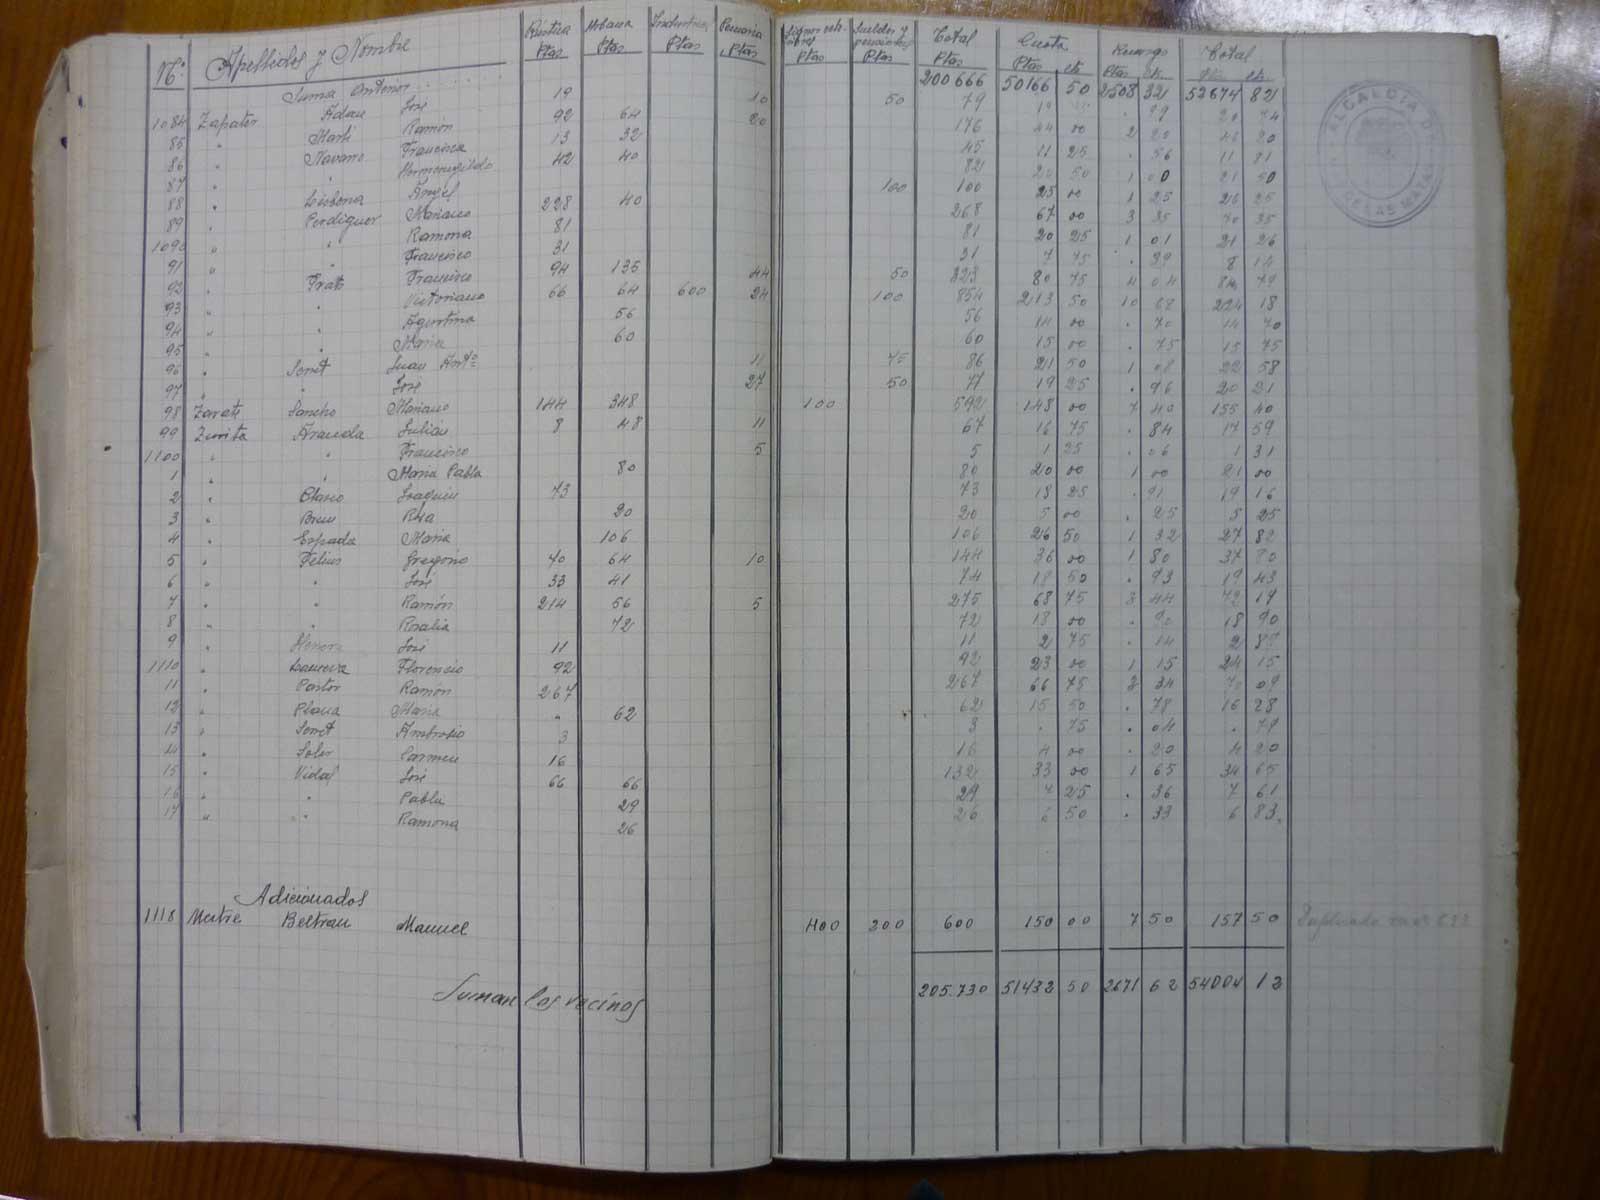 Nº Apellidos y Nombre Rústica Ptas Urbana Ptas Industrial Ptas Pecuaria Ptas Signos ext. Ptas Sueldos y pensiones Ptas Total Ptas Cuota Ptas cts Recargo Ptas cts Total Pts cts
Suma Anterior 200666 50166 50 2508 32 52674 82
1084 Zapater Adan José 19 10 50 79
85 " Martí Ramón 92 64 20 176 44 00 2 20 46 20
86 " Navarro Francisca 13 32 45 11 25 . 56 11 81
87 " " Hermenegildo 42 40 82 20 50 1 00 21 50
88 " Lisbona Angel 100 100 25 00 1 25 26 25
89 " Perdiguer Mariano 228 40 268 67 00 3 35 70 35
1090 " " Ramona 81 81 20 25 1 01 21 26
91 " " Francisco 31 31 7 75 . 39 8 14
92 " Prats Francisco 94 135 44 50 323 80 75 4 04 84 79
93 " " Victoriano 66 64 600 24 100 854 213 50 10 68 224 18
94 " " Agustina 56 56 14 00 . 70 14 70
95 " " María 60 60 15 00 . 75 15 75
96 " Serret Juan Antº 11 75 86 21 50 1 08 22 58
97 " " José 27 50 77 19 25 . 96 20 21
98 Zarate Sancho Mariano 144 348 100 592 148 00 7 40 155 40
99 Zurita Aranda Julián 8 48 11 67 16 75 . 84 17 59
1100 " " Francisco 5 5 1 25 . 06 1 31
1 " " María Pabla 80 80 20 00 1 00 21 00
2 " Blasco Joaquín 73 73 18 25 . 91 19 16
3 " Breu Rosa 20 20 5 00 . 25 5 25
4 " Espada María 106 106 26 50 1 32 27 82
5 " Felius Gregorio 70 64 10 144 36 00 1 80 37 80
6 " " José 33 41 74 18 50 . 93 19 43
7 " " Ramón 214 56 5 275 68 75 3 44 72 19
8 " " Rosalia 72 72 18 00 . 90 18 90
9 " José 11 11 2 75 . 14 2 89
1110 " Lanueva Florencio 92 92 23 00 1 15 24 15
11 " Pastor Ramón 267 267 66 75 3 34 70 09
12 " Plana María " 62 62 15 50 . 78 16 28
13 " Serret Ambrosio 3 3 . 75 . 04 . 79
14 " Soler Carmen 16 16 4 00 . 20 4 20
15 " Vidal José 66 66 132 33 00 1 65 34 65
16 " " Pabla 29 29 7 25 . 36 7 61
17 " " Ramona 26 26 6 50 . 33 6 83
Adicionados
1118 Mestre Beltran Manuel 400 200 600 150 00 7 50 157 50 Duplicado
Suman los vecinos 205.730 51432 50 2671 62 54004 12
ALCALDIA DE